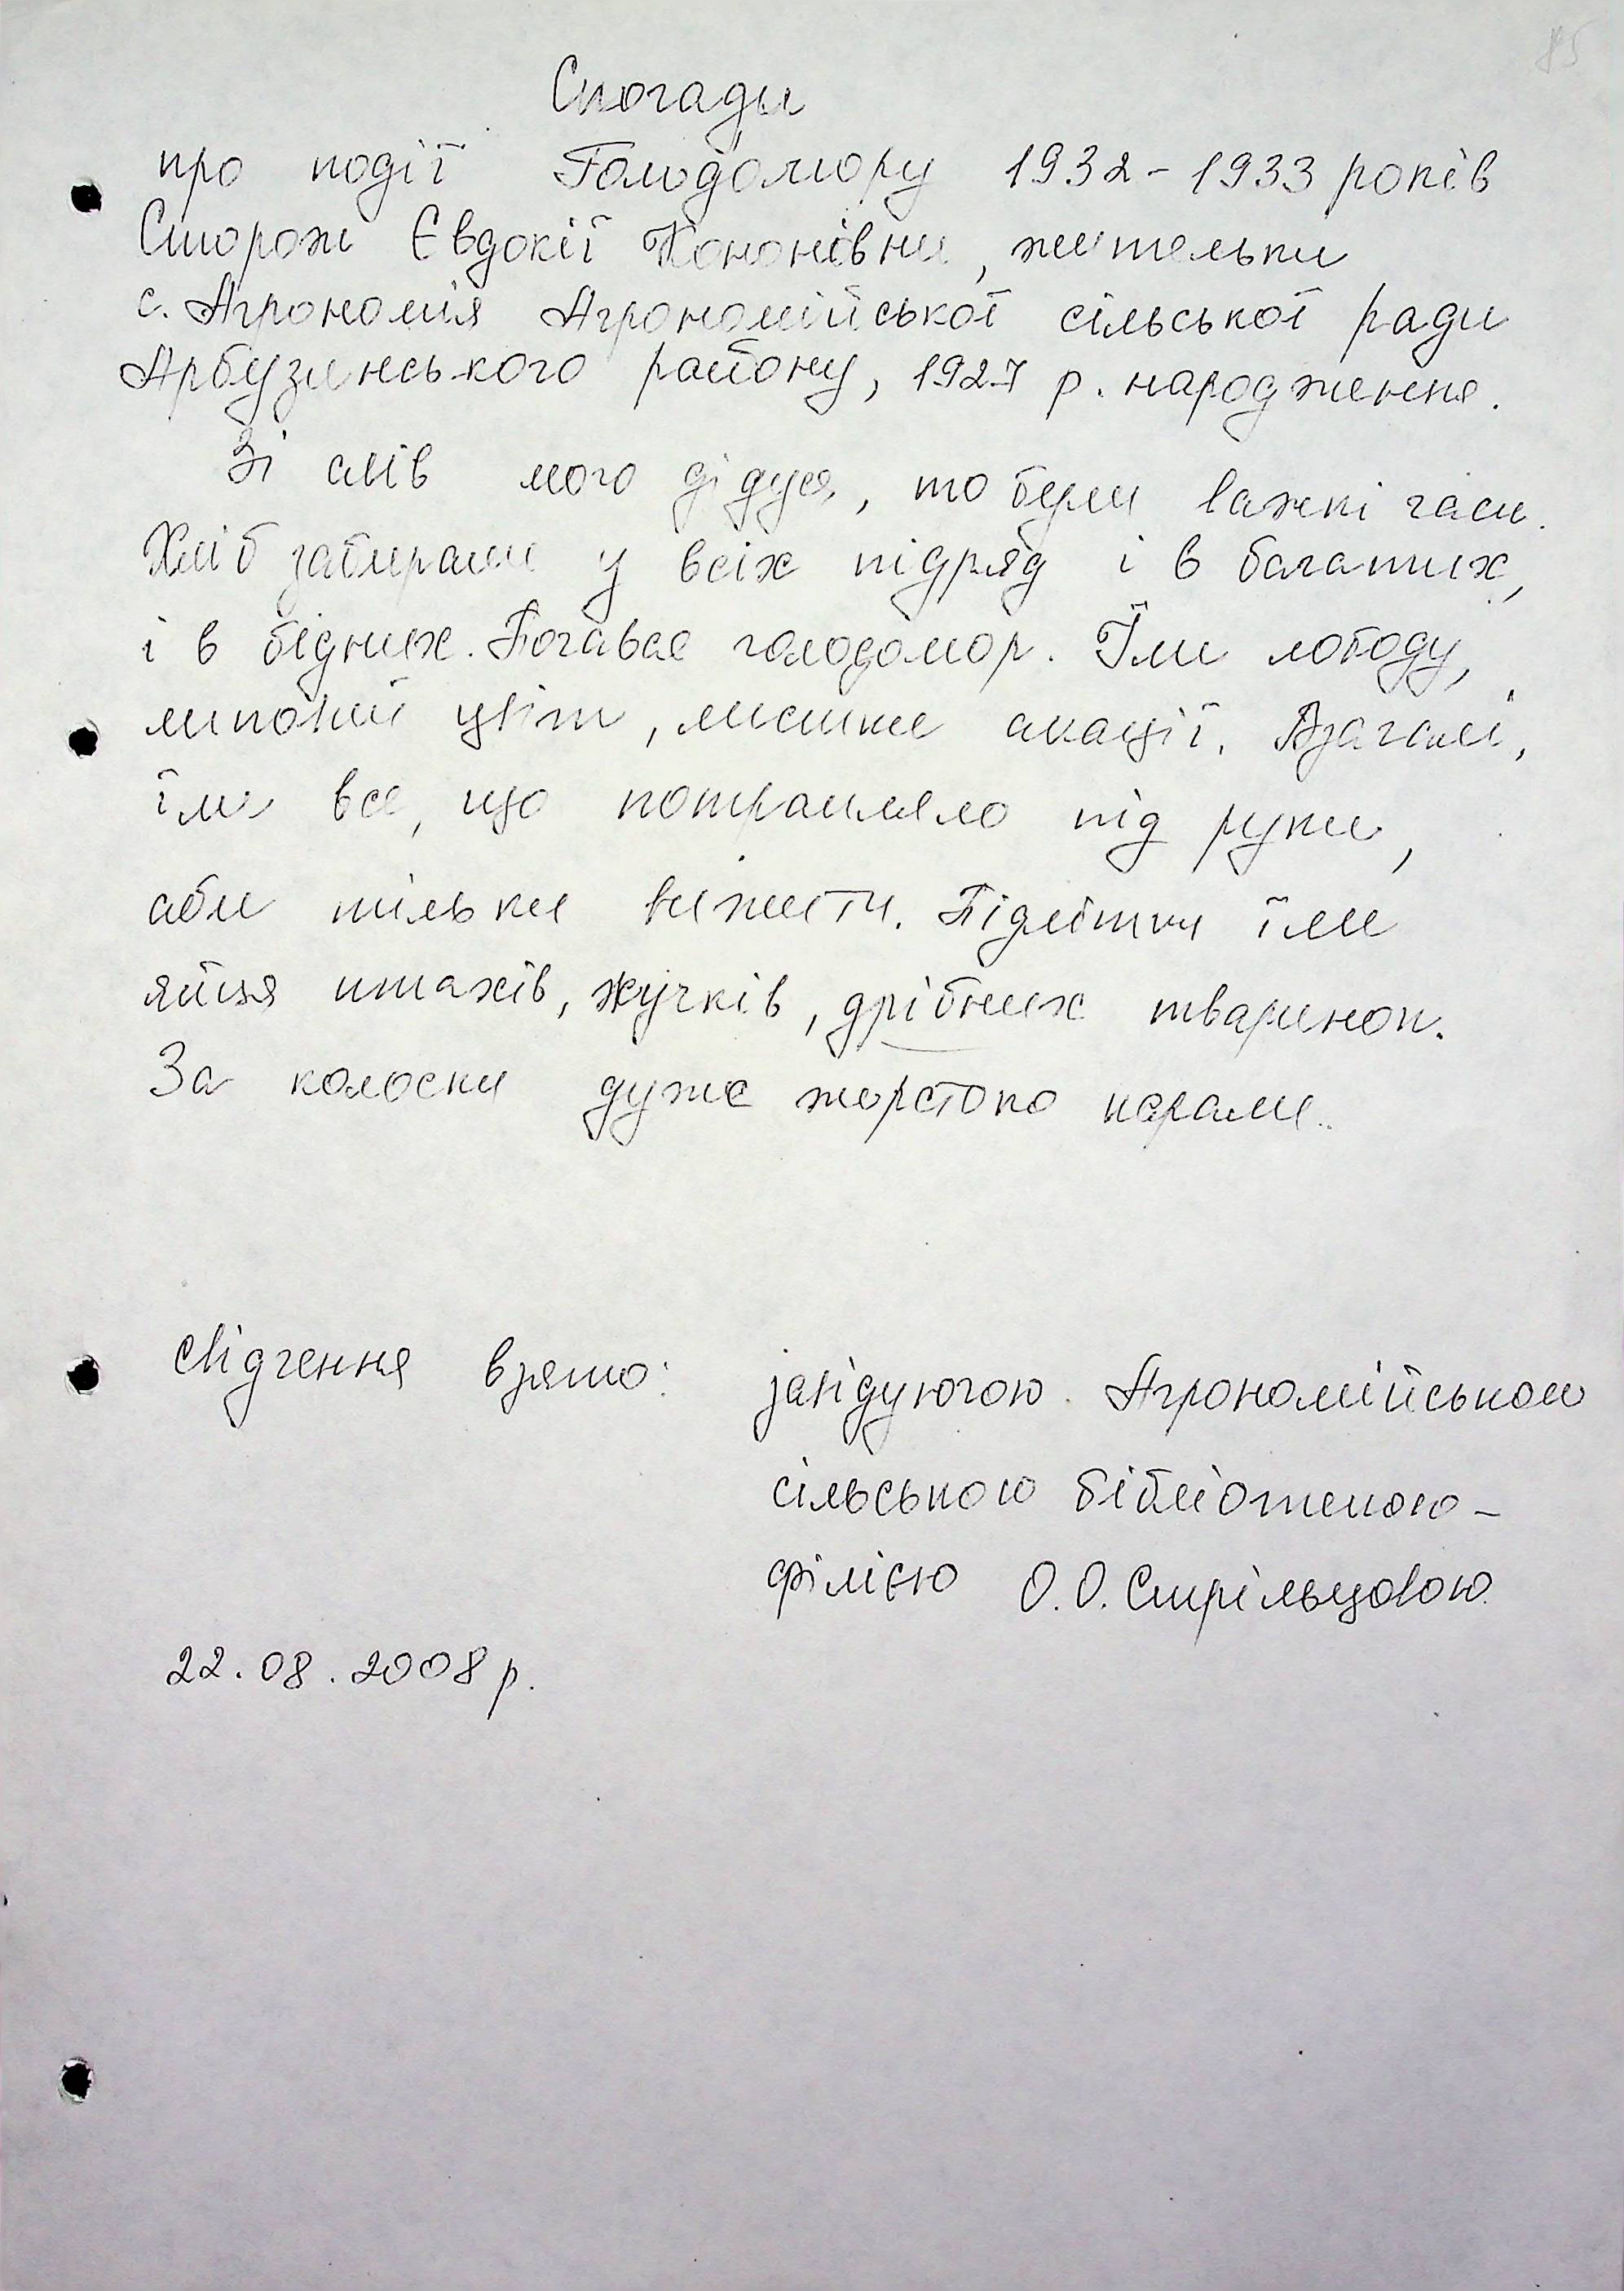 85
Спогади
про події Голодомору 1932-1933 років
Сторож Євдокії Кононівни, жительки
с. Агрономія Агрономійської сільської ради
Арбузинського району, 1927 р. народження.
Зі слів мого дідуся, то були важкі часи.
Хліб забирали у всіх підряд і в багатих,
і в бідних. Почався голодомор. Їли лободу,
липовий цвіт, листя акації. Взагалі,
їли все, що потрапляло під руки,
аби тільки вижити. Підлітки їли
яйця птахів, жучків, дрібних тваринок.
За колоски дуже жорстоко карали.
свідчення взято: завідуючою Агрономійською
сільською бібліотекою-
філією О.О. Стрільцовою
22.08.2008 р.